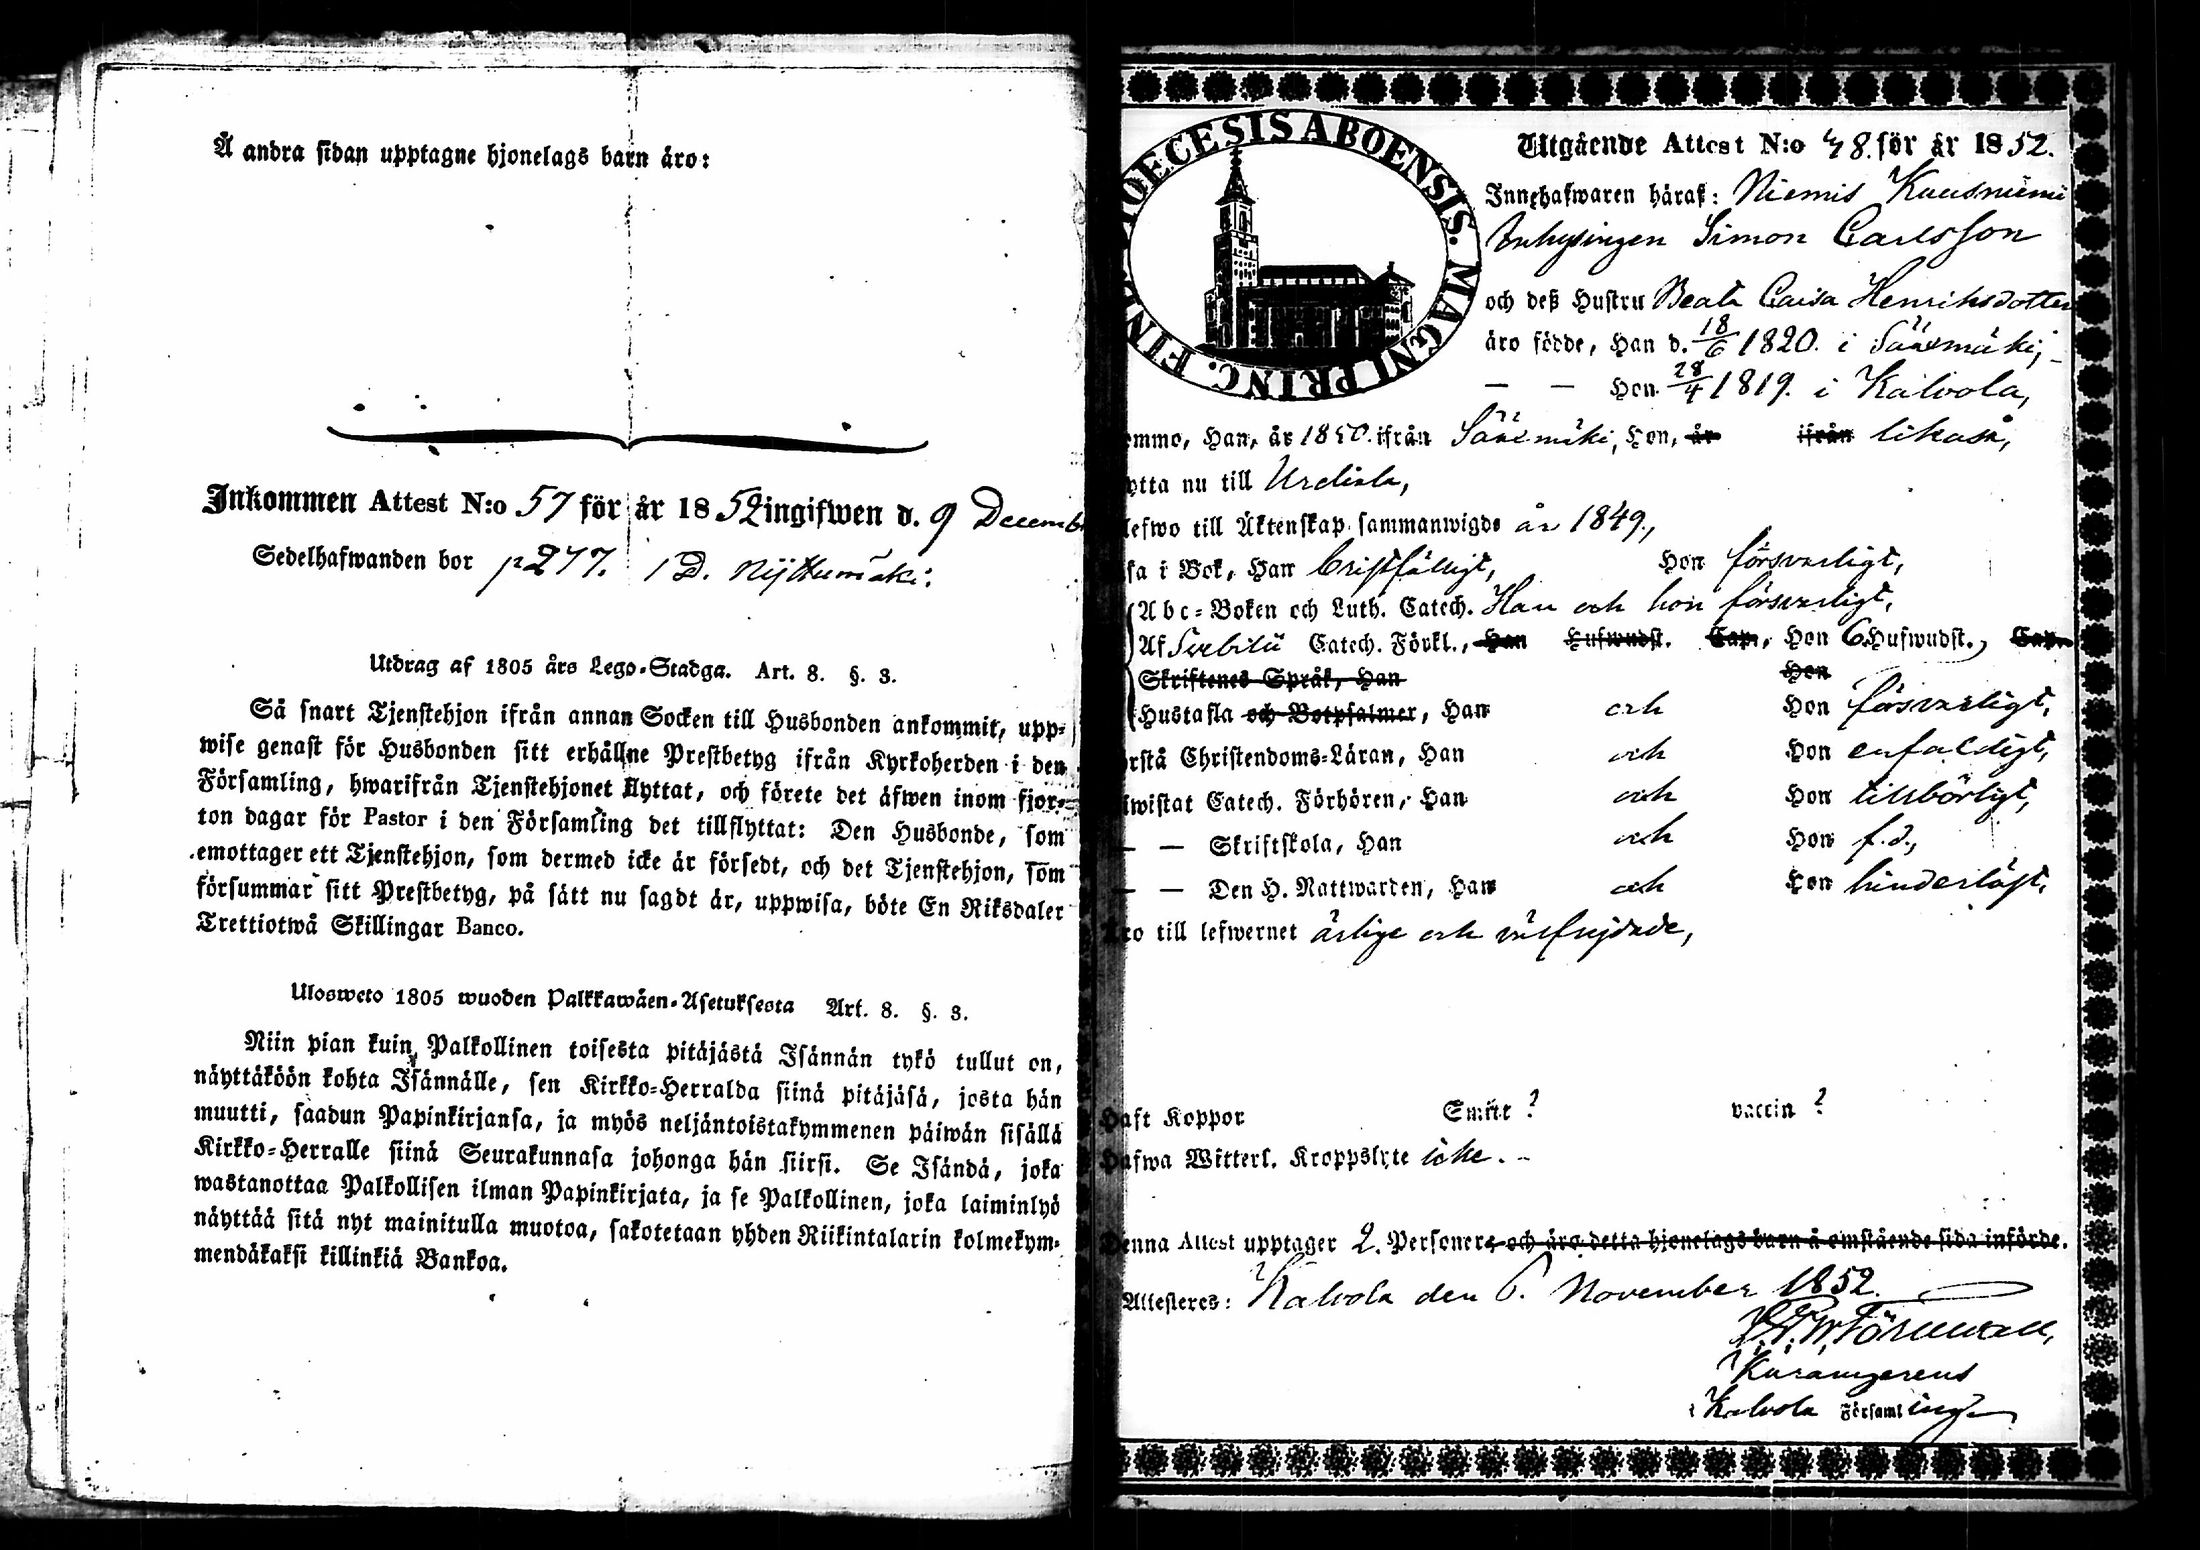 Å andra sidan upptagne hjonelags barn äro:
Inkommen Attest N:o 57 för år 1852 ingifwen d. 9 Decemb
Sedelhafwanden bor p 277.
Utdrag af 1805 års Lego-Stadga. Art. 8. §. 3.
Så snart Tjenstehjon ifrån annan Socken till Husbonden ankommit, upp-
wise genast för Husbonden sitt erhållne Prestbetyg ifrån Kyrkoherden i den
Församling, hwarifrån Tjenstehjonet flyttat, och förete det äfwen inom fjor-
ton dagar för Pastor i den Församling det tillflyttat: Den Husbonde, som
emottager ett Tjenstehjon, som dermed icke är försedt, och det Tjenstehjon, som
försummar sitt Prestbetyg, på sätt nu sagdt är, uppwisa, böte En Riksdaler
Trettiotwå Skillingar Banco.
Ulosweto 1805 wuoden Palkkawäen-Asetuksesta Art. 8. §. 3.
Niin pian kuin Palkollinen toisesta pitäjästä Isännän tykö tullut on,
näyttäköön kohta Isännälle, sen Kirkko-Herralda siinä pitäjäsä, josta hän
muutti, saadun Papinkirjansa, ja myös neljäntoistakymmenen päiwän sisällä
Kirkko-Herralle siinä Seurakunnasa johonga hän siirsi. Se Isändä, joka
wastanottaa Palkollisen ilman Papinkirjata, ja se Palkollinen, joka laiminlyö
näyttää sitä nyt mainitulla muotoa, sakotetaan yhden Riikintalarin kolmekym-
mendäkaksi killinkiä Bankoa.
DIOECESIS ABOENSIS. MAGNI PRINC. FINL.
Utgående Attest N:o 48. för år 1852.
Innehafwaren häraf: Niemis Kuusniemi
Inhysingen Simon Carlsson
och deß Hustru Beata Caisa Henriksdotter
äro födde, Han d. 18/6 1820. i Sääxmäki,
— — Hon 28/4 1819. i Kalvola,
ommo, Han, år 1850. ifrån Sääxmäki, Hon, år ifrån likaså,
ytta nu till Urdiala,
lefwo till Äktenskap sammanwigde år 1849.,
sa i Bok, Han bristfälligt, Hon försvarligt,
Abc-Boken och Luth. Catech. Han och hon försvarligt,
Af Svebilii Catech. Förkl., Han Hufwudst. Cap., Hon 6 Hufwudst., Cap.
Skriftenes Språk, Han Hon
Hustafla och Botpsalmer, Han och Hon försvarligt,
rstå Christendoms-Läran, Han och Hon enfaldigt,
iwistat Catech. Förhören, Han och Hon tillbörligt,
— — Skriftskola, Han och Hon f.d.,
— — Den H. Nattwarden, Han och Hon hinderlöst,
äro till lefwernet ärlige och välfrejdade,
Haft Koppor Smitt ? vaccin ?
Hafwa Witterl. Kroppslyte icke.
Denna Attest upptager 2. Personer, och äro detta hjonelags barn å omstående sida införde.
Attesteres: Kalvola den 6. November 1852.
Kalvola Församling